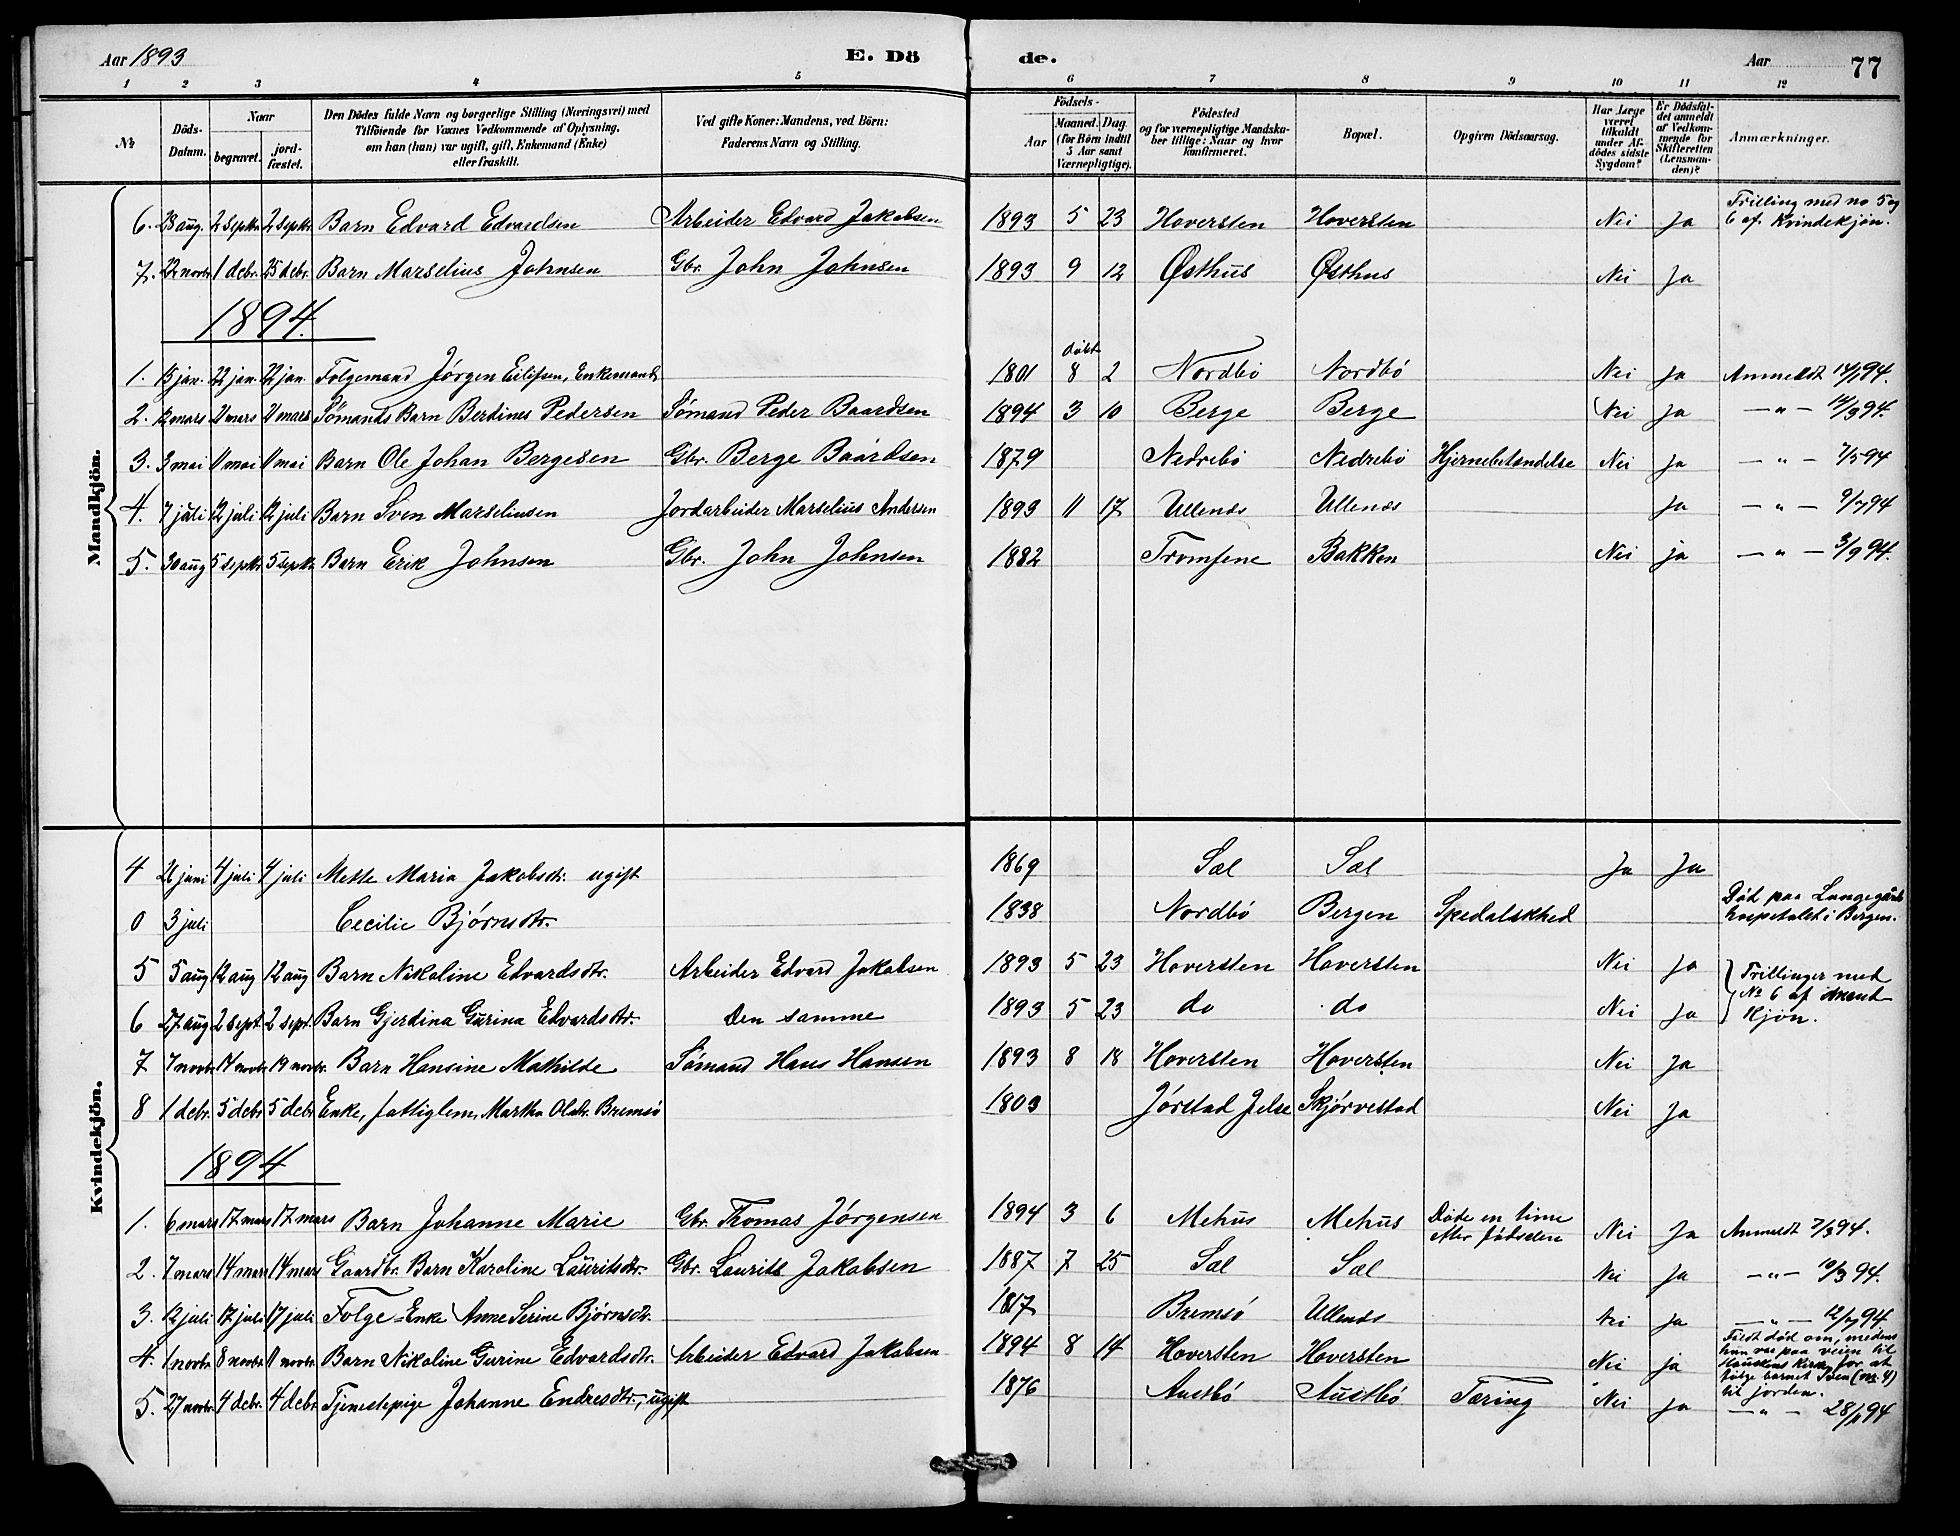 Aar 1893 E. Dö de. Aar 77
1 2 3 4 5 6 7 8 9 10 11 12
№ Döds-Datum. Naar begravet. jord-fæstet. Den Dödes fulde Navn og borgerlige Stilling (Næringsvei) med Tilföiende for Voxnes Vedkommende af Oplysning, om han (hun) var ugift, gift, Enkemand (Enke) eller fraskilt. Ved gifte Koner: Mandens, ved Börn: Faderens Navn og Stilling. Födsels- Aar Maaned. Dag. (for Börn indtil 5 Aar samt Værnepligtige). Födested og for værnepligtige Mandskaber tillige: Naar og hvor konfirmeret. Bopæl. Opgiven Dödsaarsag. Har Læge været tilkaldt under Afdödes sidste Sygdom? Er Dödsfaldet anmeldt af Vedkommende for Skifteretten (Lensmanden)? Anmærkninger.
Mandkjön.
6. 28 aug. 2 septr. 2 septr. Barn Edvard Edvardsen Arbeider Edvard Jakobsen 1893 5 23 Hoversten Hoversten Nei Ja Trilling med no 5 og 6 af Kvindekjön.
7. 22 novbr. 1 debr. 25 debr. Barn Marselius Johnsen Gbr. John Johnsen 1893 9 12 Østhus Østhus Nei Ja
1894.
1. 13 jan. 22 jan. 22 jan. Folgemand Jørgen Eilifsen, Enkemand 1801 döbt 8 2 Nordbö Nordbö Nei Ja Anmeldt 14/1 94.
2. 12 mars 21 mars 21 mars Sømands Barn Berdines Pedersen Sømand Peder Baardsen 1894 3 10 Berge Berge Nei Ja — " — 14/3 94.
3. 3 mai 11 mai 11 mai Barn Ole Johan Bergesen Gbr. Berge Baardsen 1879 Nedrebö Nedrebö Hjernebetændelse Nei Ja — " — 7/5 94
4. 7 juli 12 juli 12 juli Barn Sven Marseliusen Jordarbeider Marselius Andersen 1893 11 17 Ullenes Ullenes Ja — " — 9/7 94
5. 30 aug 5 septr. 5 septr. Barn Erik Johnsen Gbr. John Johnsen 1882 Tromsene Bakken Nei ja — " — 3/9 94.
Kvindekjön.
4 26 juni 4 juli 4 juli Mette Maria Jakobsdtr. ugift 1869 Sæl Sæl Ja Ja
0 3 juli Cecilie Bjørnsdtr. 1838 Nordbö Bergen Spedalskhed Død paa Lungegårds hospitalet i Bergen.
5 5 aug 12 aug 12 aug Barn Nikoline Edvardsdtr. Arbeider Edvard Jakobsen 1893 5 23 Hoversten Hoversten Nei Ja Trillinger med
6 27 aug 2 sept. 2 sept. Barn Gjerdina Gurina Edvardsdtr. Den samme 1893 5 23 do do Nei Ja № 6 af Mandkjön.
7 7 novbr. 17 novbr. 19 novbr. Barn Hansine Mathilde Sømand Hans Hansen 1893 8 18 Hoversten Hoversten Nei Ja
8 1 debr. 5 debr. 5 debr. Enke, fattiglem, Martha Olsdtr. Bremsö 1803 Jørstad Jelse Skjørvestad Nei Ja
1894
1. 6 mars 17 mars 17 mars Barn Johanne Marie Gbr. Thomas Jørgensen 1894 3 6 Mehus Mehus Døde en time efter fødselen Nei Ja Anmeldt 7/3 94.
2. 7 mars 14 mars 14 mars Gaardbr. Barn Karoline Lauritsdtr. Gbr. Laurits Jakobsen 1887 7 25 Sæl Sæl Nei Ja — " — 10/3 94.
3. 12 juli 17 juli 17 juli Folge-Enke Anne Serine Bjørnsdtr. 1817 Bremsö Ullenes Nei Ja — " — 12/7 94
4. 1 novbr. 8 novbr. 11 novbr. Barn Nikoline Gurine Edvardsdtr. Arbeider Edvard Jakobsen 1894 8 14 Hoversten Hoversten Nei ja Faldt død om, medens han var paa veien til kirke for at følge barnet Sven (no. 4) til jorden.
5. 27 novbr. 4 debr. 4 debr. Tjenestepige Johanne Endresdtr., ugift 1876 Austbö Austbö Tæring Nei ja — " — 28/11 94